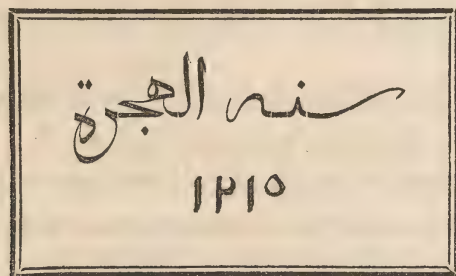 سنه الهجرة
١٢١٥